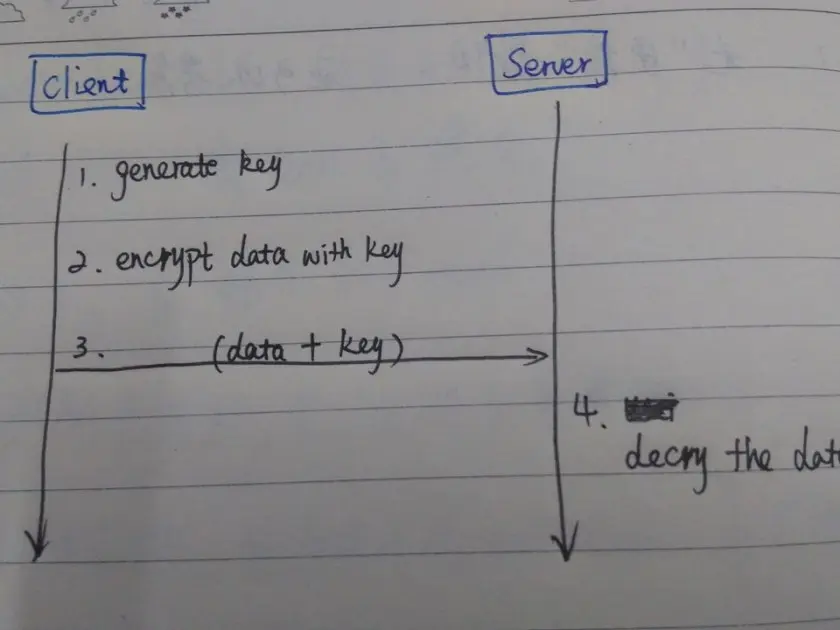 Client
Server
1. generate key
2. encrypt data with key
3. (data + key)
4.
decry the data